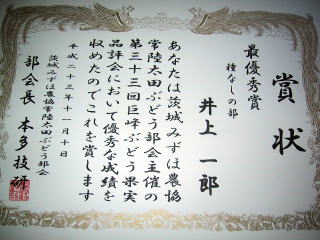 賞状
最優秀賞
種なしの部
井上一郎
あなたは茨城みずほ農協
常陸太田ぶどう部会主催の
第三十三回巨峰ぶどう果実
品評会において優秀な成績を
収めたのでこれを賞します
平成二十三年十一月十日
茨城みずほ農協常陸太田ぶどう部会
部会長 本多技研